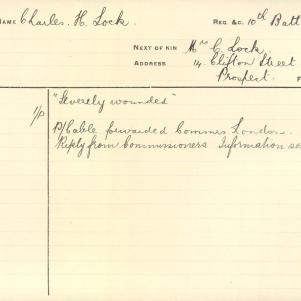 NAME Charles. H. Lock. REG. &C. 10th Batt
NEXT OF KIN Mrs C. Lock
ADDRESS 14. Clifton Street
Prospect.
"Severely wounded"
1/P P/Cable forwarded Commrs London.
Reply from Commissioners Information